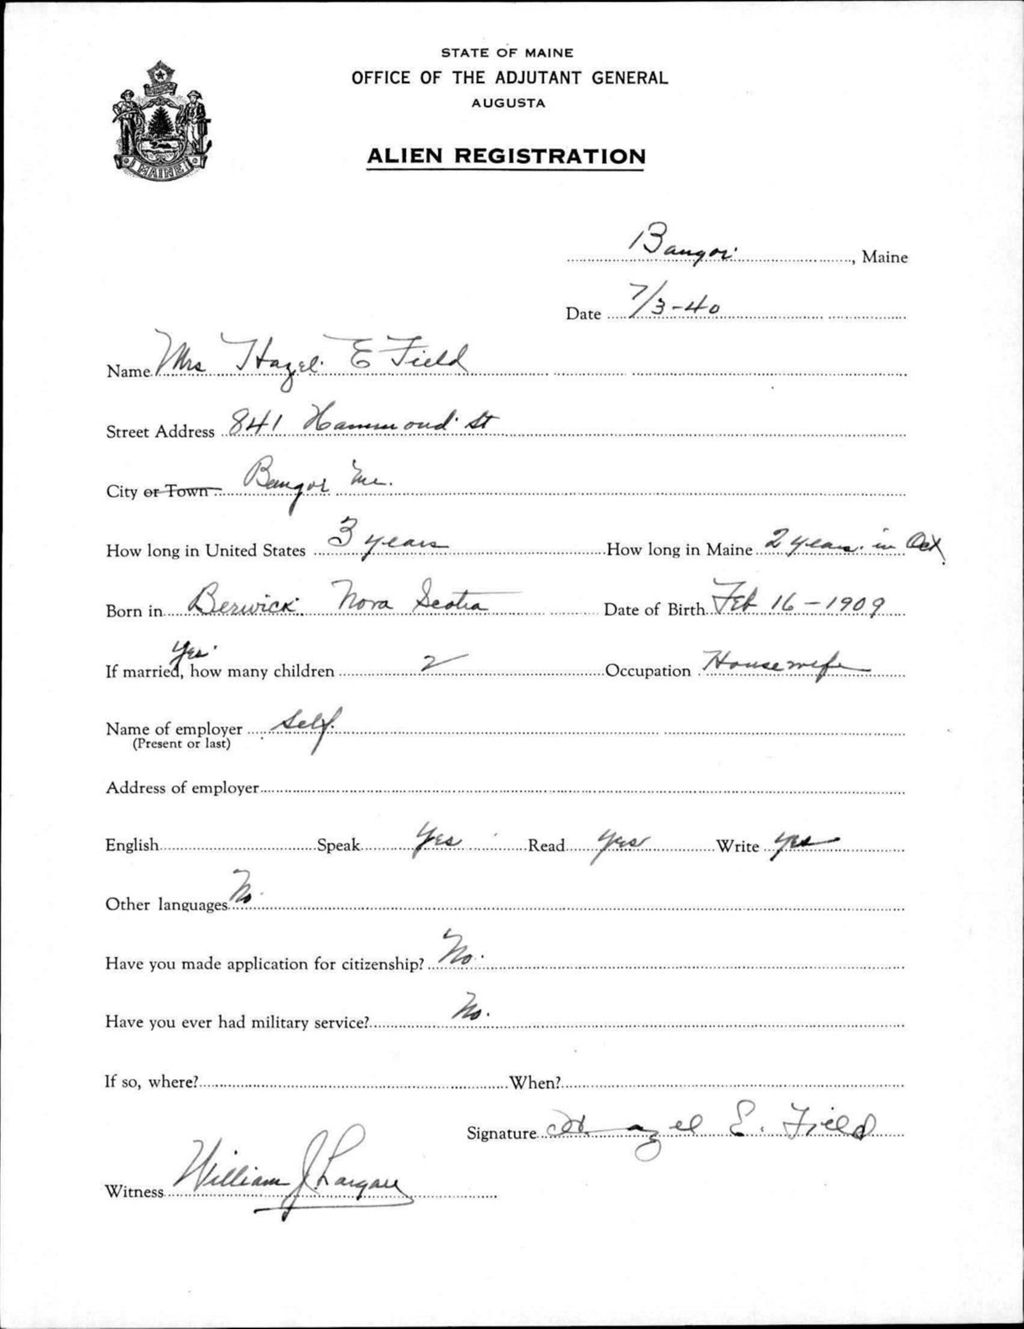 STATE OF MAINE
OFFICE OF THE ADJUTANT GENERAL
AUGUSTA
ALIEN REGISTRATION
MAINE
Bangor, Maine
Date 7/3-40
Name Mrs Hazel E Field
Street Address 841 Hammond St
City or Town Bangor Me.
How long in United States 3 years How long in Maine 2 years in Oct
Born in Berwick Nova Scotia Date of Birth Feb 16-1909
Yes
If married, how many children 2 Occupation Housewife
Name of employer Self.
(Present or last)
Address of employer
English Speak Yes Read Yes Write Yes
Other languages No
Have you made application for citizenship? No.
Have you ever had military service? No.
If so, where? When?
Signature Hazel E. Field
Witness William J